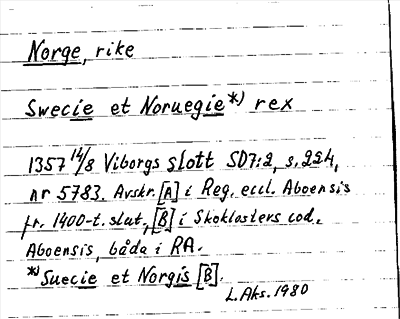 Norge, rike
Swecie et Noruegie*) rex
1357 14/8 Viborgs slott SD7:2, s. 224,
nr 5783. Avskr. [A] i Reg. eccl. Aboensis
fr. 1400-t. slut, [B] i Skoklosters cod.
Aboensis, båda i RA.
*) Suecie et Norgis [B].
L. Aks. 1980